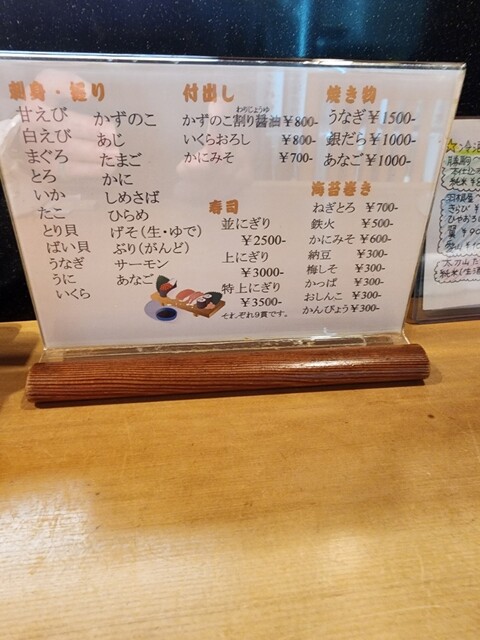 刺身・握り
甘えび
白えび
まぐろ
とろ
いか
たこ
とり貝
ばい貝
うなぎ
うに
いくら
かずのこ
あじ
たまご
かに
しめさば
ひらめ
げそ(生・ゆで)
ぶり(がんど)
サーモン
あなご
付出し
わりじょうゆ
かずのこ割り醤油 ¥800-
いくらおろし ¥800-
かにみそ ¥700-
寿司
並にぎり
¥2500-
上にぎり
¥3000-
特上にぎり
¥3500-
それぞれ9貫です。
焼き物
うなぎ ¥1500-
銀だら ¥1000-
あなご ¥1000-
海苔巻き
ねぎとろ ¥700-
鉄火 ¥500-
かにみそ ¥600-
納豆 ¥300-
梅しそ ¥300-
かっぱ ¥300-
おしんこ ¥300-
かんぴょう ¥300-